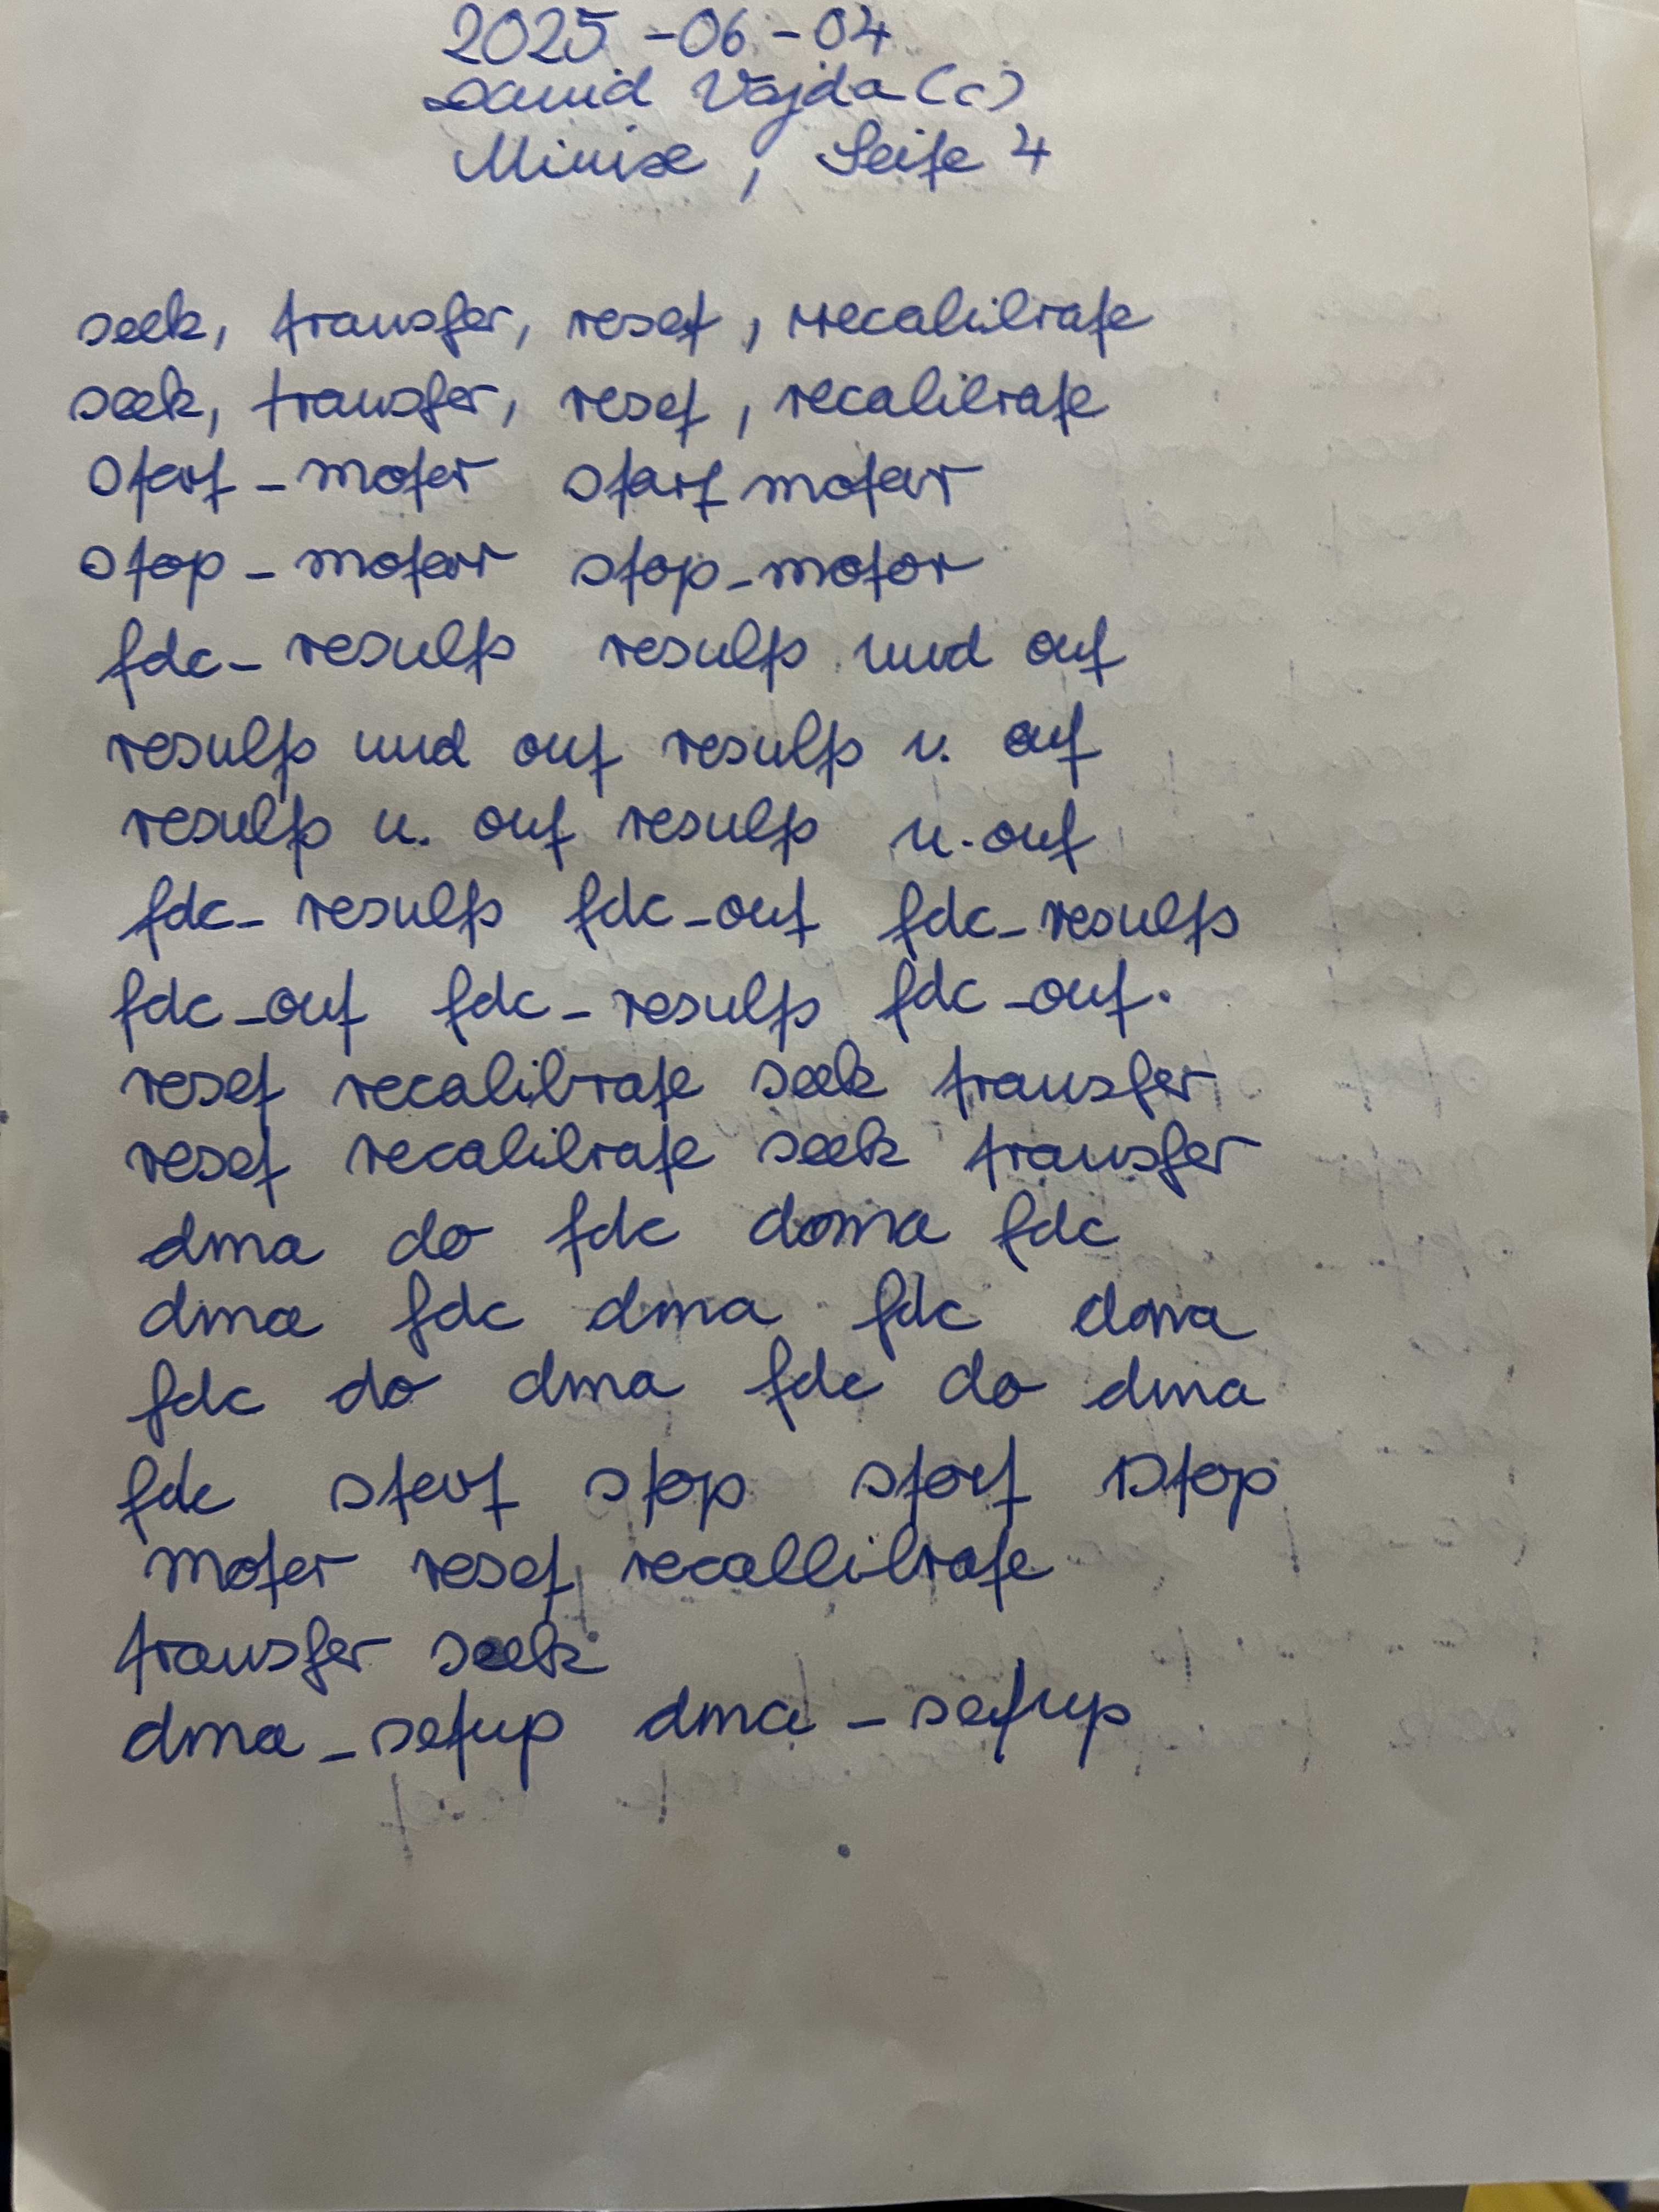 2025-06-04
David Vajda (c)
Minix, Seite 4
seek, transfer, reset, recalibrate
seek, transfer, reset, recalibrate
start-motor start motor
stop-motor stop-motor
fdc-results results und out
results und out results u. out
results u. out results u. out
fdc-results fdc-out fdc-results
fdc-out fdc-results fdc-out.
reset recalibrate seek transfer
reset recalibrate seek transfer
dma do fdc dma fdc
dma fdc dma fdc dma
fdc do dma fdc do dma
fdc start stop start stop
motor reset recallibrate
transfer seek
dma_setup dma_setup